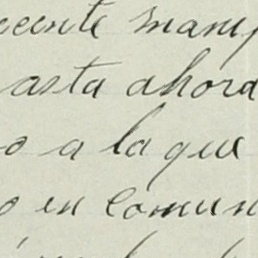 reciente manif
asta ahora
o a la que
o en comun